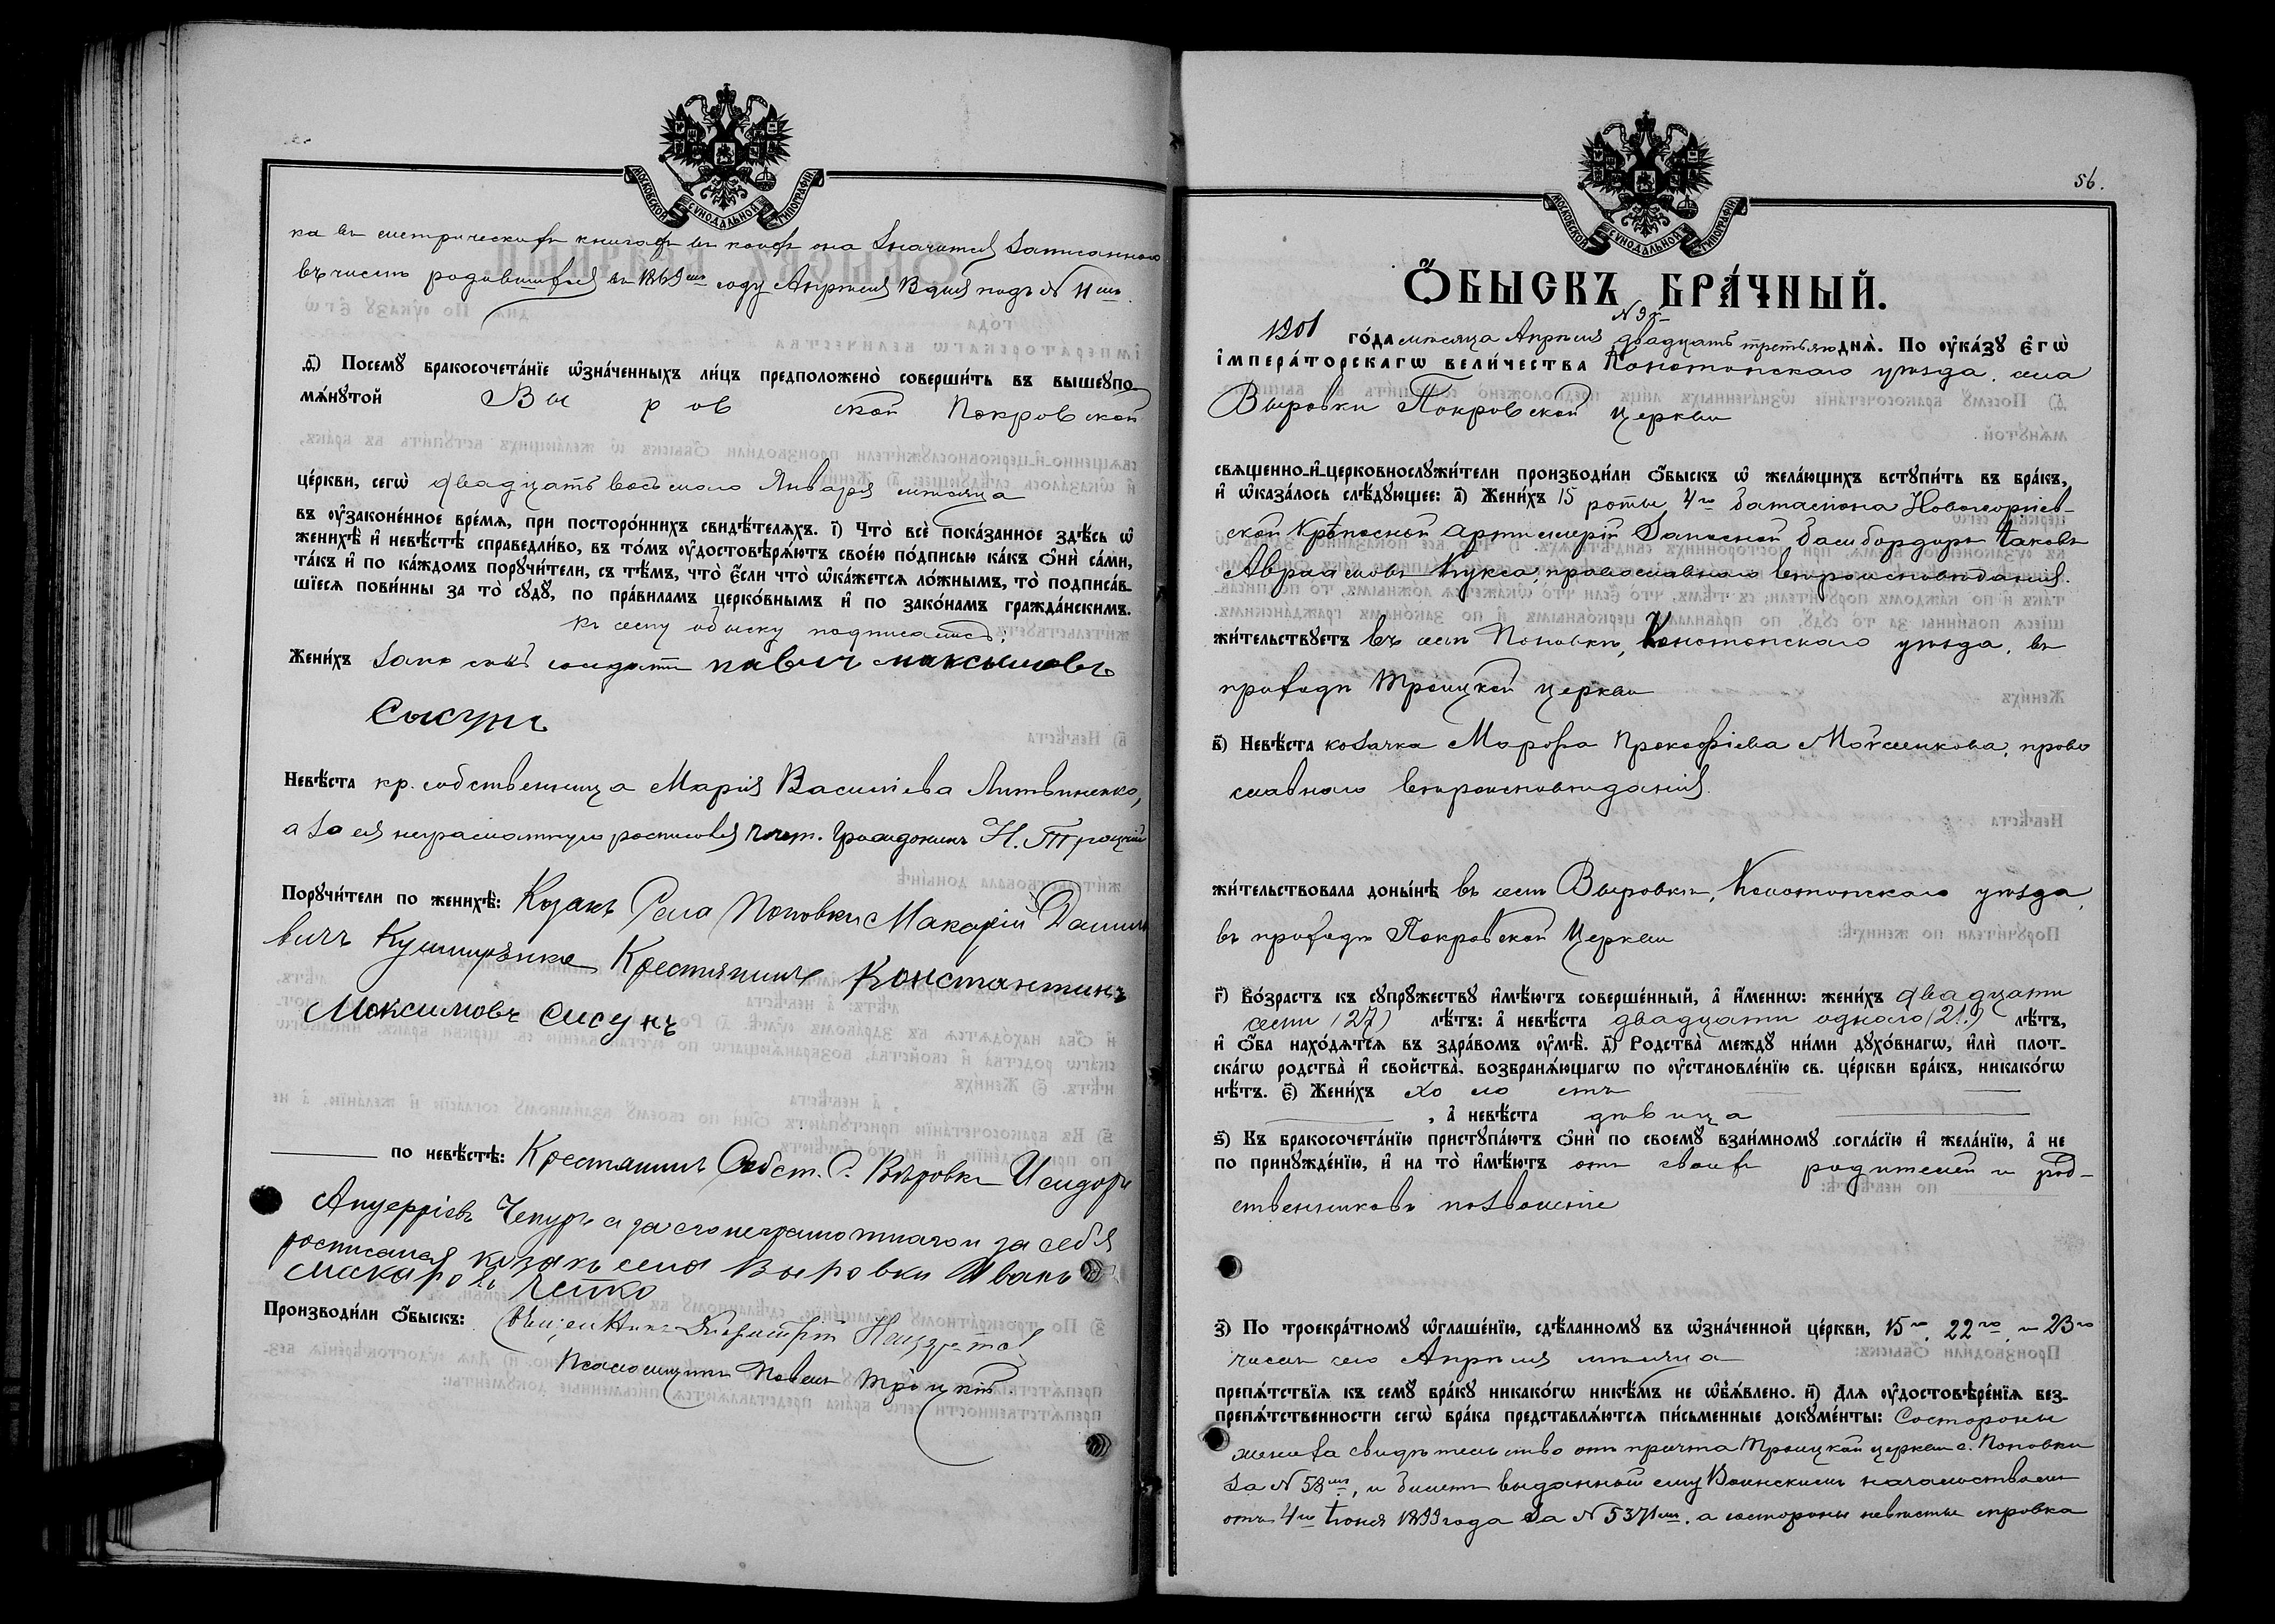 МОСКОВСКОЙ СѴНОДАЛЬНОЙ ТИПОГРАФІИ
ка въ метрическихъ книгахъ въ коихъ она значится записанною
въ числѣ родившихся въ 1869мъ году Апрѣля дня подъ № 11мъ.
д҃) Посемꙋ бракосочета́нїе ѡ҆зна́ченныхъ ли́цъ предположено̀ соверши́ть въ вышеꙋпо-
мѧ́нꙋтой Выровской Покровской
це́ркви, сегѡ̀ двадцать восьмого Января мѣсяца
въ ᲂу҆законе́нное вре́мѧ, при посторо́ннихъ свидѣ́телѧхъ. і҃) Что̀ всѐ пока́занное здѣ́сь ѡ҆
женихѣ̀ и҆ невѣ́стѣ справедли́во, въ то́мъ ᲂу҆достовѣрѧ́ютъ свое́ю по́дписью ка́къ ѻ҆нѝ са́ми,
та́къ и҆ по ка́ждомъ порꙋчи́тели, съ тѣ́мъ, что̀ є҆́сли что̀ ѡ҆ка́жетсѧ ло́жнымъ, то̀ подписа́в-
шїесѧ пови́нны за то̀ сꙋдꙋ̀, по пра́виламъ церко́внымъ и҆ по зако́намъ гражда́нскимъ.
къ сему обыску подписались:
Жени́хъ солдатъ павелъ максымовъ
Сысунъ
Невѣ́ста кр. собственница Марія Василіева Литвиненко,
а за ея неграмотную росписался Гражданинъ Н. Троцкій
Порꙋчи́тели по женихѣ̀: Козакъ Села Поповки Макарій
Крестянинъ Константинъ
Максимовъ Сисунъ
по невѣ́стѣ: Крестянинъ Собст. С. Исидоръ
Чепуръ а за его неграмотнаго и за себя
росписался козакъ села Выровки Иванъ
Макаровъ
Производи́ли ѻ҆́быскъ: Священникъ
Псаломщикъ Павелъ Троцкій.
МОСКОВСКОЙ СѴНОДАЛЬНОЙ ТИПОГРАФІИ
56.
Ѻ҆́БЫСКЪ БРА́ЧНЫЙ.
№ 9й
1901 го́да мѣсяца Апрѣля двадцать третьяго днѧ̀. По ᲂу҆ка́зꙋ є҆гѡ̀
і҆мпера́торскагѡ вели́чества Конотопскаго уѣзда, села
Выровки Покровской церкви
свѧщенно-и҆-церковнослꙋжи́тели производи́ли ѻ҆́быскъ ѡ҆ жела́ющихъ встꙋпи́ть въ бра́къ,
и҆ ѡ҆каза́лось слѣ́дꙋющее: а҃) Жени́хъ 15 роты 4го баталіона Новогеоргіев-
ской Крѣпосной артиллеріи Запасной бомбордиръ Іаковъ
Авраамовъ Кукса, православнаго вѣроисповѣданія.
жи́тельствꙋетъ въ селѣ Поповкѣ, Конотопскаго уѣзда, въ
приходѣ Троицкой церкви
в҃) Невѣ́ста козачка Марѳа Прокофіева Мойсеикова, право
славнаго вѣроисповѣданія.
жи́тельствовала доны́нѣ въ селѣ Выровкѣ, Конотопскаго уѣзда,
въ приходѣ Покровской Церкви
г҃) Во́зрастъ къ сꙋпрꙋ́жествꙋ и҆мѣ́ютъ соверше́нный, а҆ и҆́меннѡ: жени́хъ двадцати
семи (27) лѣ́тъ: а҆ невѣ́ста двадцати одного (21.) лѣ́тъ,
и҆ ѻ҆́ба нахо́дѧтсѧ въ здра́вомъ ᲂу҆мѣ̀. д҃) Родства̀ междꙋ̀ ни́ми дꙋхо́внагѡ, и҆лѝ плот-
ска́гѡ родства̀ и҆ сво́йства, возбранѧ́ющагѡ по ᲂу҆становле́нїю св. це́ркви бра́къ, никако́гѡ
нѣ́тъ. є҃) Жени́хъ холостъ
, а҆ невѣ́ста дѣвица
ѕ҃) Въ бракосочета́нїю пристꙋпа́ютъ ѻ҆нѝ по своемꙋ̀ взаи́мномꙋ согла́сїю и҆ жела́нїю, а҆ не
по принꙋжде́нїю, и҆ на то̀ и҆мѣ́ютъ отъ своихъ родителей и род-
ственниковъ позволеніе
з҃) По троекра́тномꙋ ѡ҆глаше́нїю, сдѣ́ланномꙋ въ ѡ҆зна́ченной це́ркви, 15го, 22го, и 23го
чиселъ сего Апрѣля мѣсяца
препѧ́тствїѧ къ семꙋ̀ бра́кꙋ никако́гѡ никѣ́мъ не ѡ҆б̾ѧ́влено. и҃) Длѧ̀ ᲂу҆достовѣре́нїѧ без-
препѧ́тственности сегѡ̀ бра́ка представлѧ́ютсѧ пи́сьменные докꙋме́нты: Состороны
жениха свидѣтельство отъ причта Троицкой церкви с. Поповки
за № 58мъ, и билетъ выданный ему Воинскимъ начальствомъ
отъ 4го Іюня 1899 года за № 5371мъ. а состороны невѣсты справка